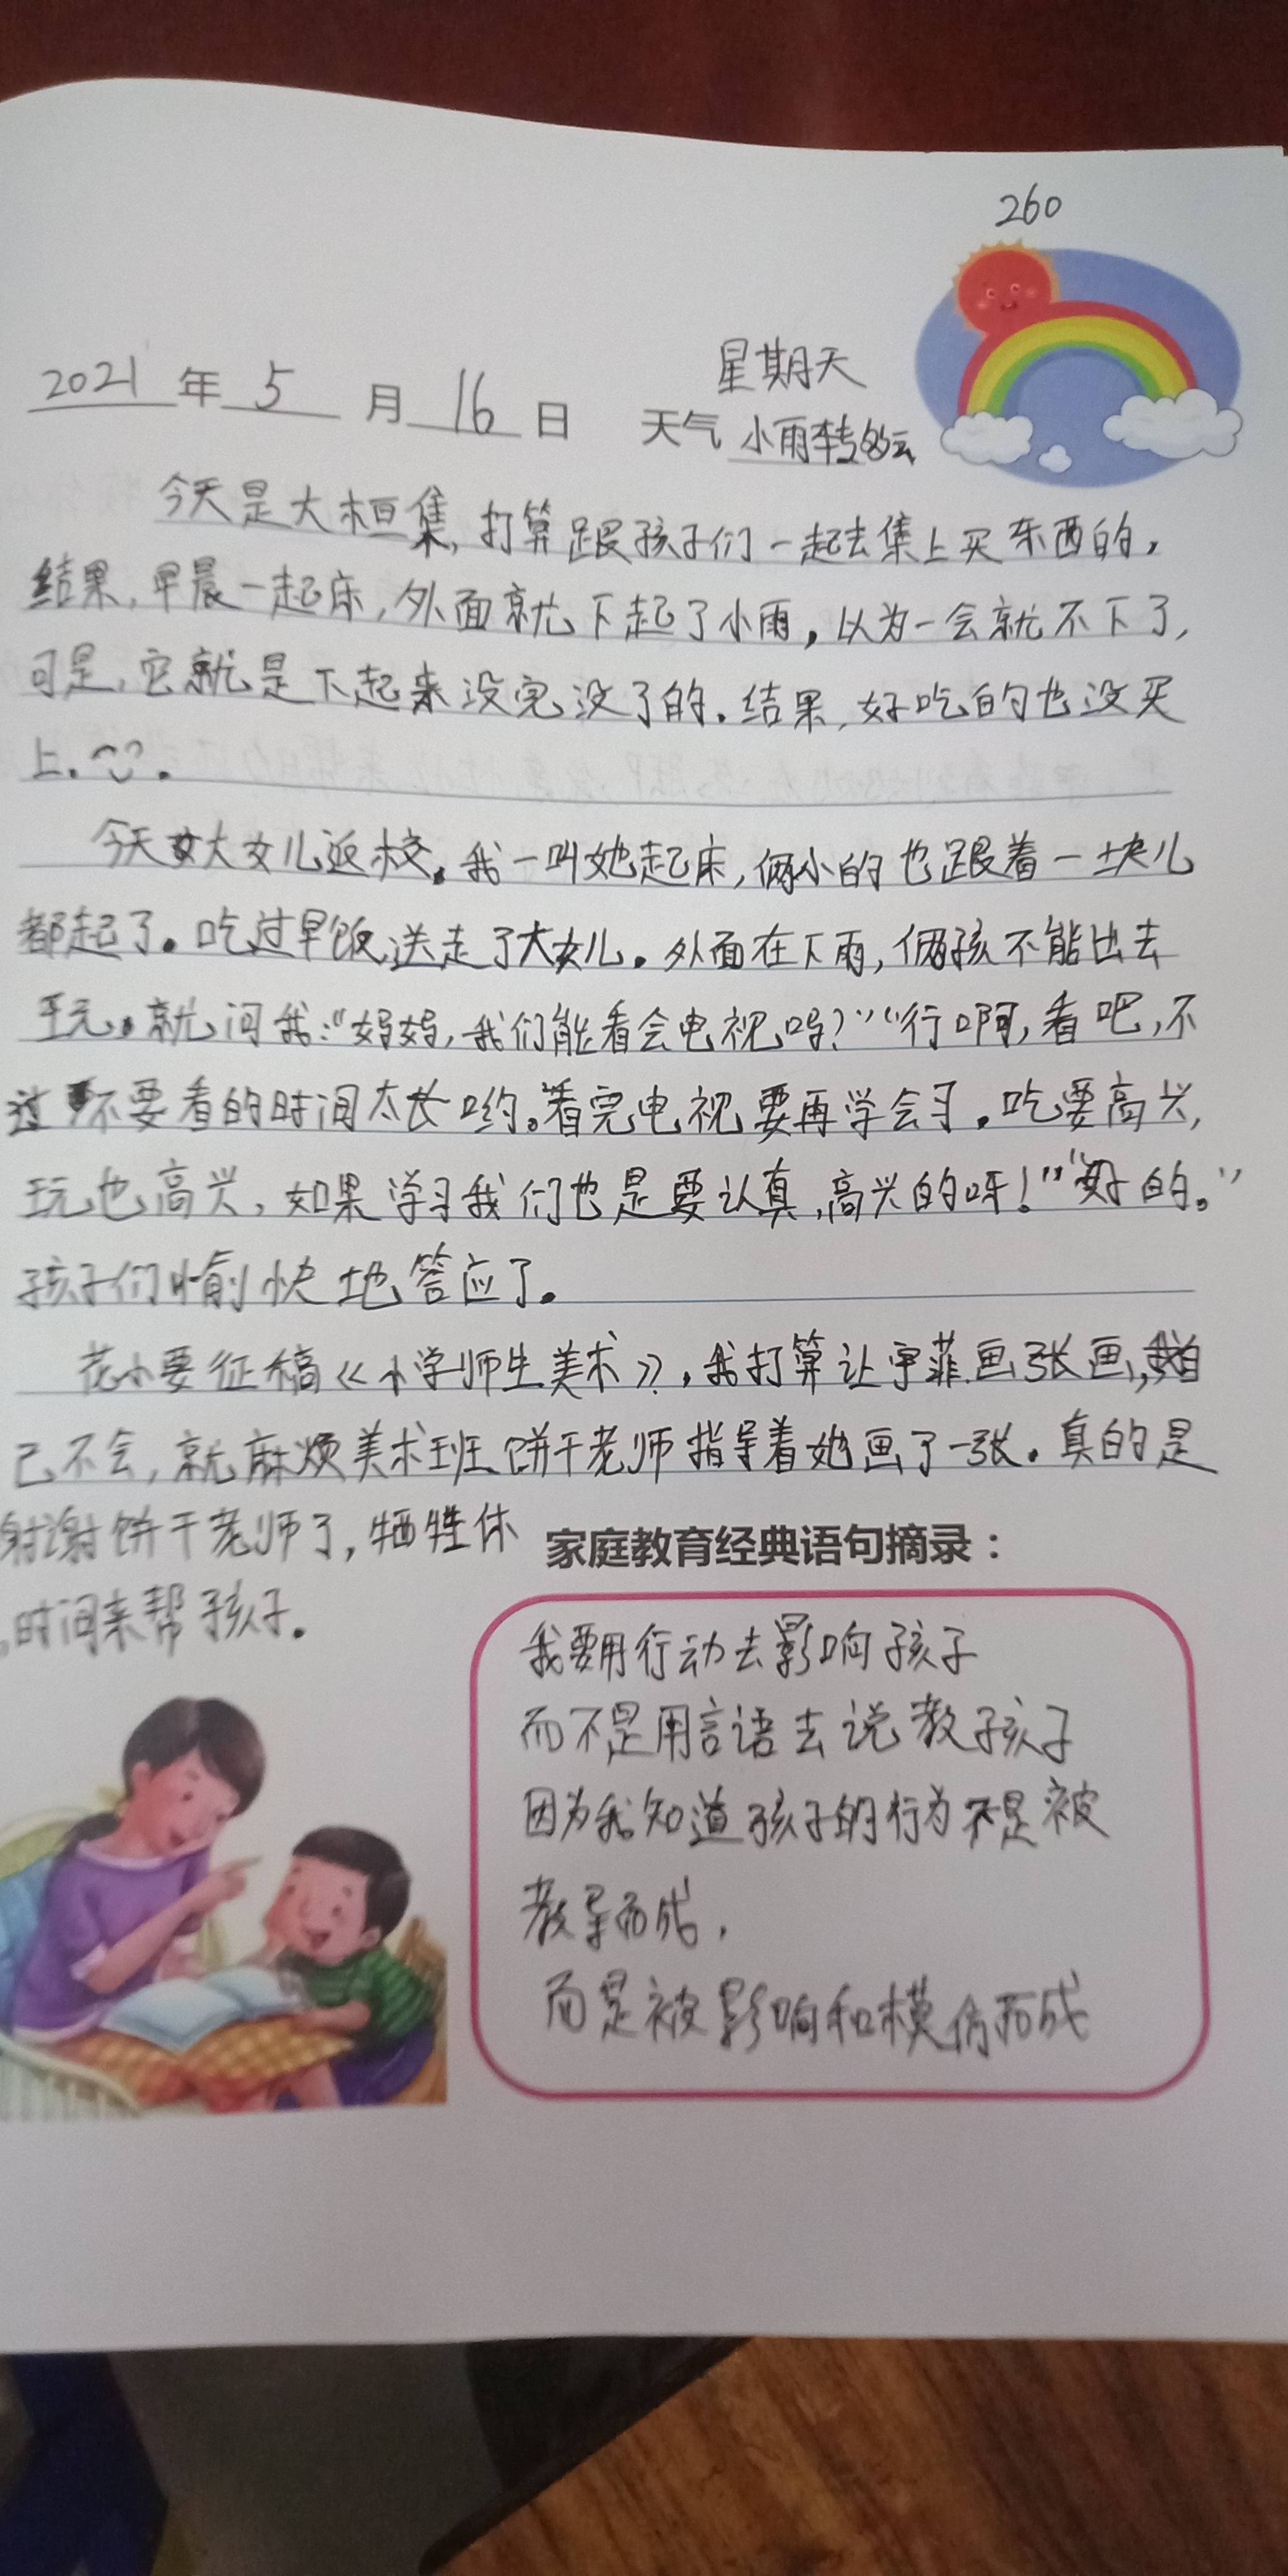 260
星期天
2021年5月16日 天气 小雨转多云
今天是大桓集，打算跟孩子们一起去集上买东西的，
结果，早晨一起床，外面就下起了小雨，以为一会就不下了，
可是，它就是下起来没完没了的。结果，好吃的也没买
上。
今天大女儿返校。我一叫她起床，俩小的也跟着一块儿
都起了。吃过早饭送走了大女儿。外面在下雨，俩孩不能出去
玩。就问我：“妈妈，我们能看会电视吗？”“行啊，看吧，不
过不要看的时间太长哟。看完电视要再学会习。吃要高兴，
玩也高兴，如果学习我们也是要认真，高兴的呀！”“好的。”
孩子们愉快地答应了。
花小要征稿《小学师生美术》，我打算让宇菲画张画，自
己不会，就麻烦美术班饼干老师指导着她画了一张。真的是
谢谢饼干老师了，牺牲休
时间来帮孩子。
家庭教育经典语句摘录：
我要用行动去影响孩子
而不是用言语去说教孩子
因为我知道孩子的行为不是被
教导而成，
而是被影响和模仿而成